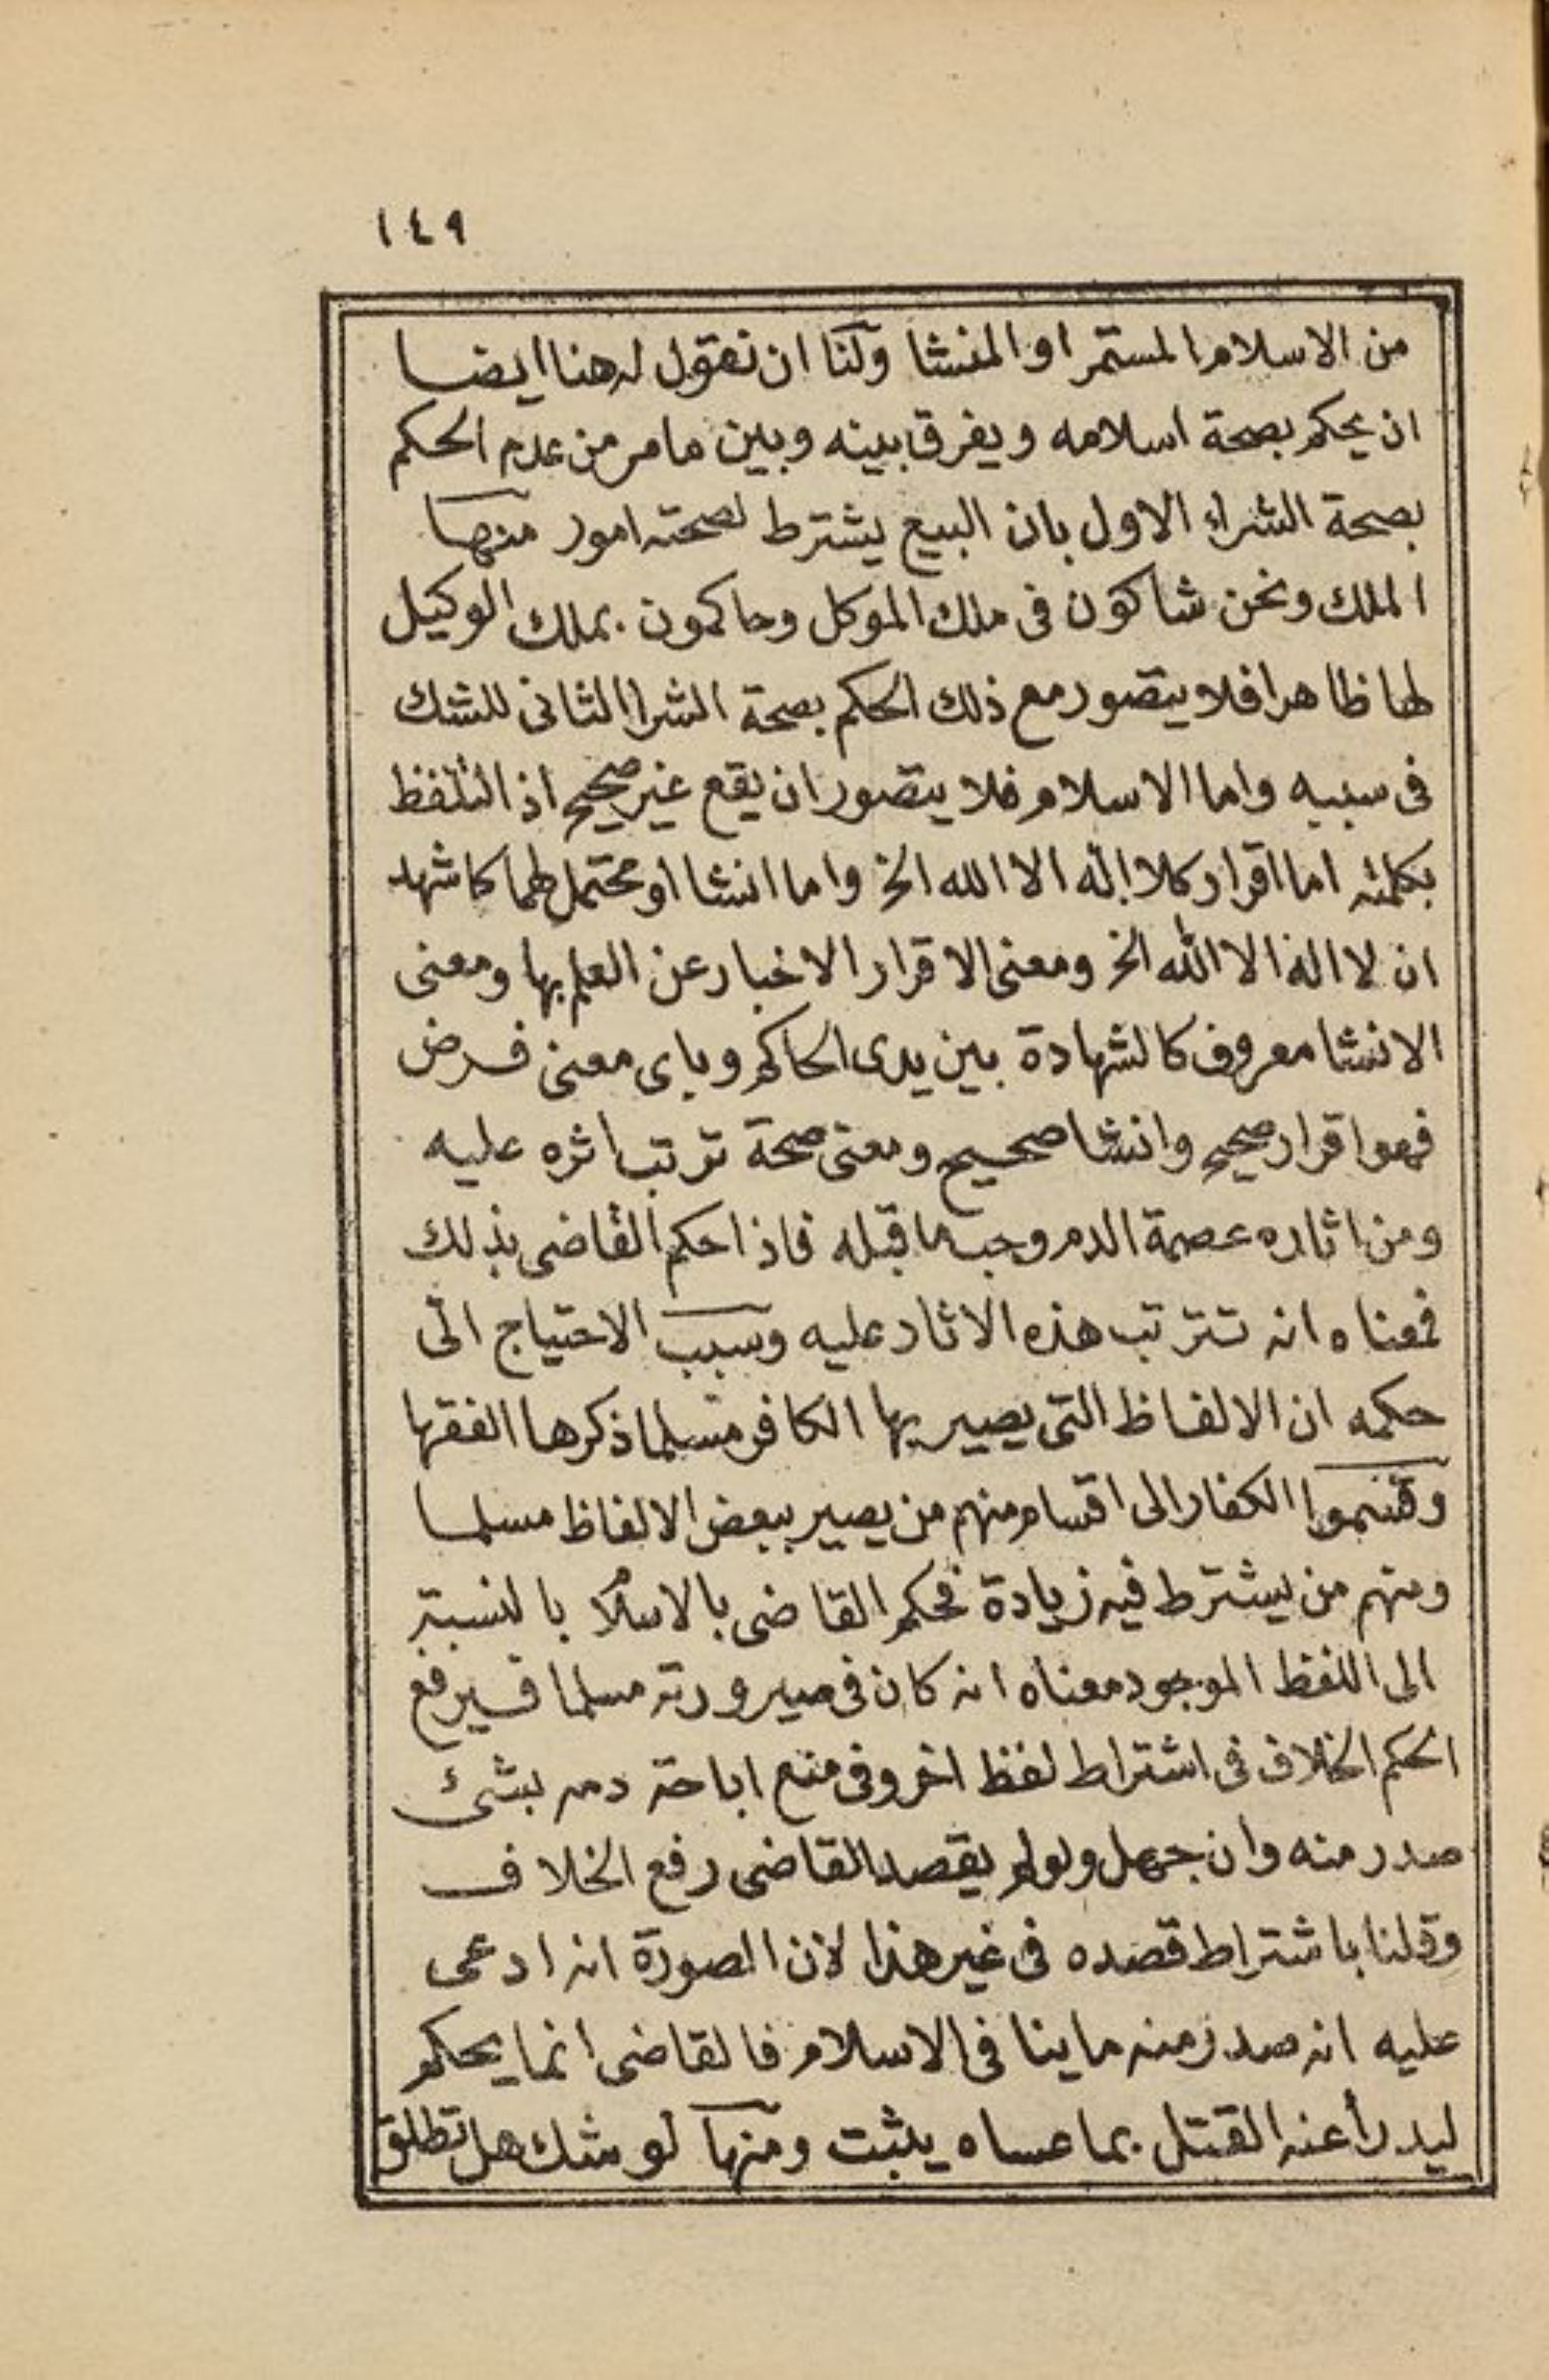 ١٤٩
من الاسلام المستمر او المنشا ولنا ان نقول له هنا ايضا
ان يحكم بصحة اسلامه ويفرق بينه وبين ما مر من عدم الحكم
بصحة الشراء الاول بان البيع يشترط لصحته امور منها
الملك ونحن شاكون فى ملك الموكل وحاكمون بملك الوكيل
لها ظاهرا فلا يتصور مع ذلك الحكم بصحة الشرا الثانى للشك
فى سببه واما الاسلام فلا يتصور ان يقع غير صحيح اذ التلفظ
بكلمته اما اقرار كلا اله الا الله الخ واما انشا او محتمل لهما كاشهد
ان لا اله الا الله الخ ومعنى الاقرار الاخبار عن العلم بها ومعنى
الانشا معروف كالشهادة بين يدى الحاكم وباى معنى فرض
فهو اقرار صحيح وانشا صحيح ومعنى صحة ترتب اثره عليه
ومن اثاره عصمة الدم وجب ما قبله فاذا حكم القاضى بذلك
فمعناه انه تترتب هذه الاثار عليه وسبب الاحتياج الى
حكمه ان الالفاظ التى يصير بها الكافر مسلما ذكرها الفقها
وقسموا الكفار الى اقسام منهم من يصير ببعض الالفاظ مسلما
ومنهم من يشترط فيه زيادة فحكم القاضى بالاسلام بالنسبة
الى اللفظ الموجود معناه انه كان فى صيرورته مسلما فيرفع
الحكم الخلاف فى اشتراط لفظ اخر وفى منع اباحة دمه بشئ
صدر منه وان جهل ولو لم يقصد القاضى رفع الخلاف
وقلنا باشتراط قصده فى غير هذا لان الصورة انه ادعى
عليه انه صدر منه ما ينا فى الاسلام فالقاضى انما يحكم
ليدرأ عنه القتل بما عساه يثبت ومنها لو شك هل تطلق